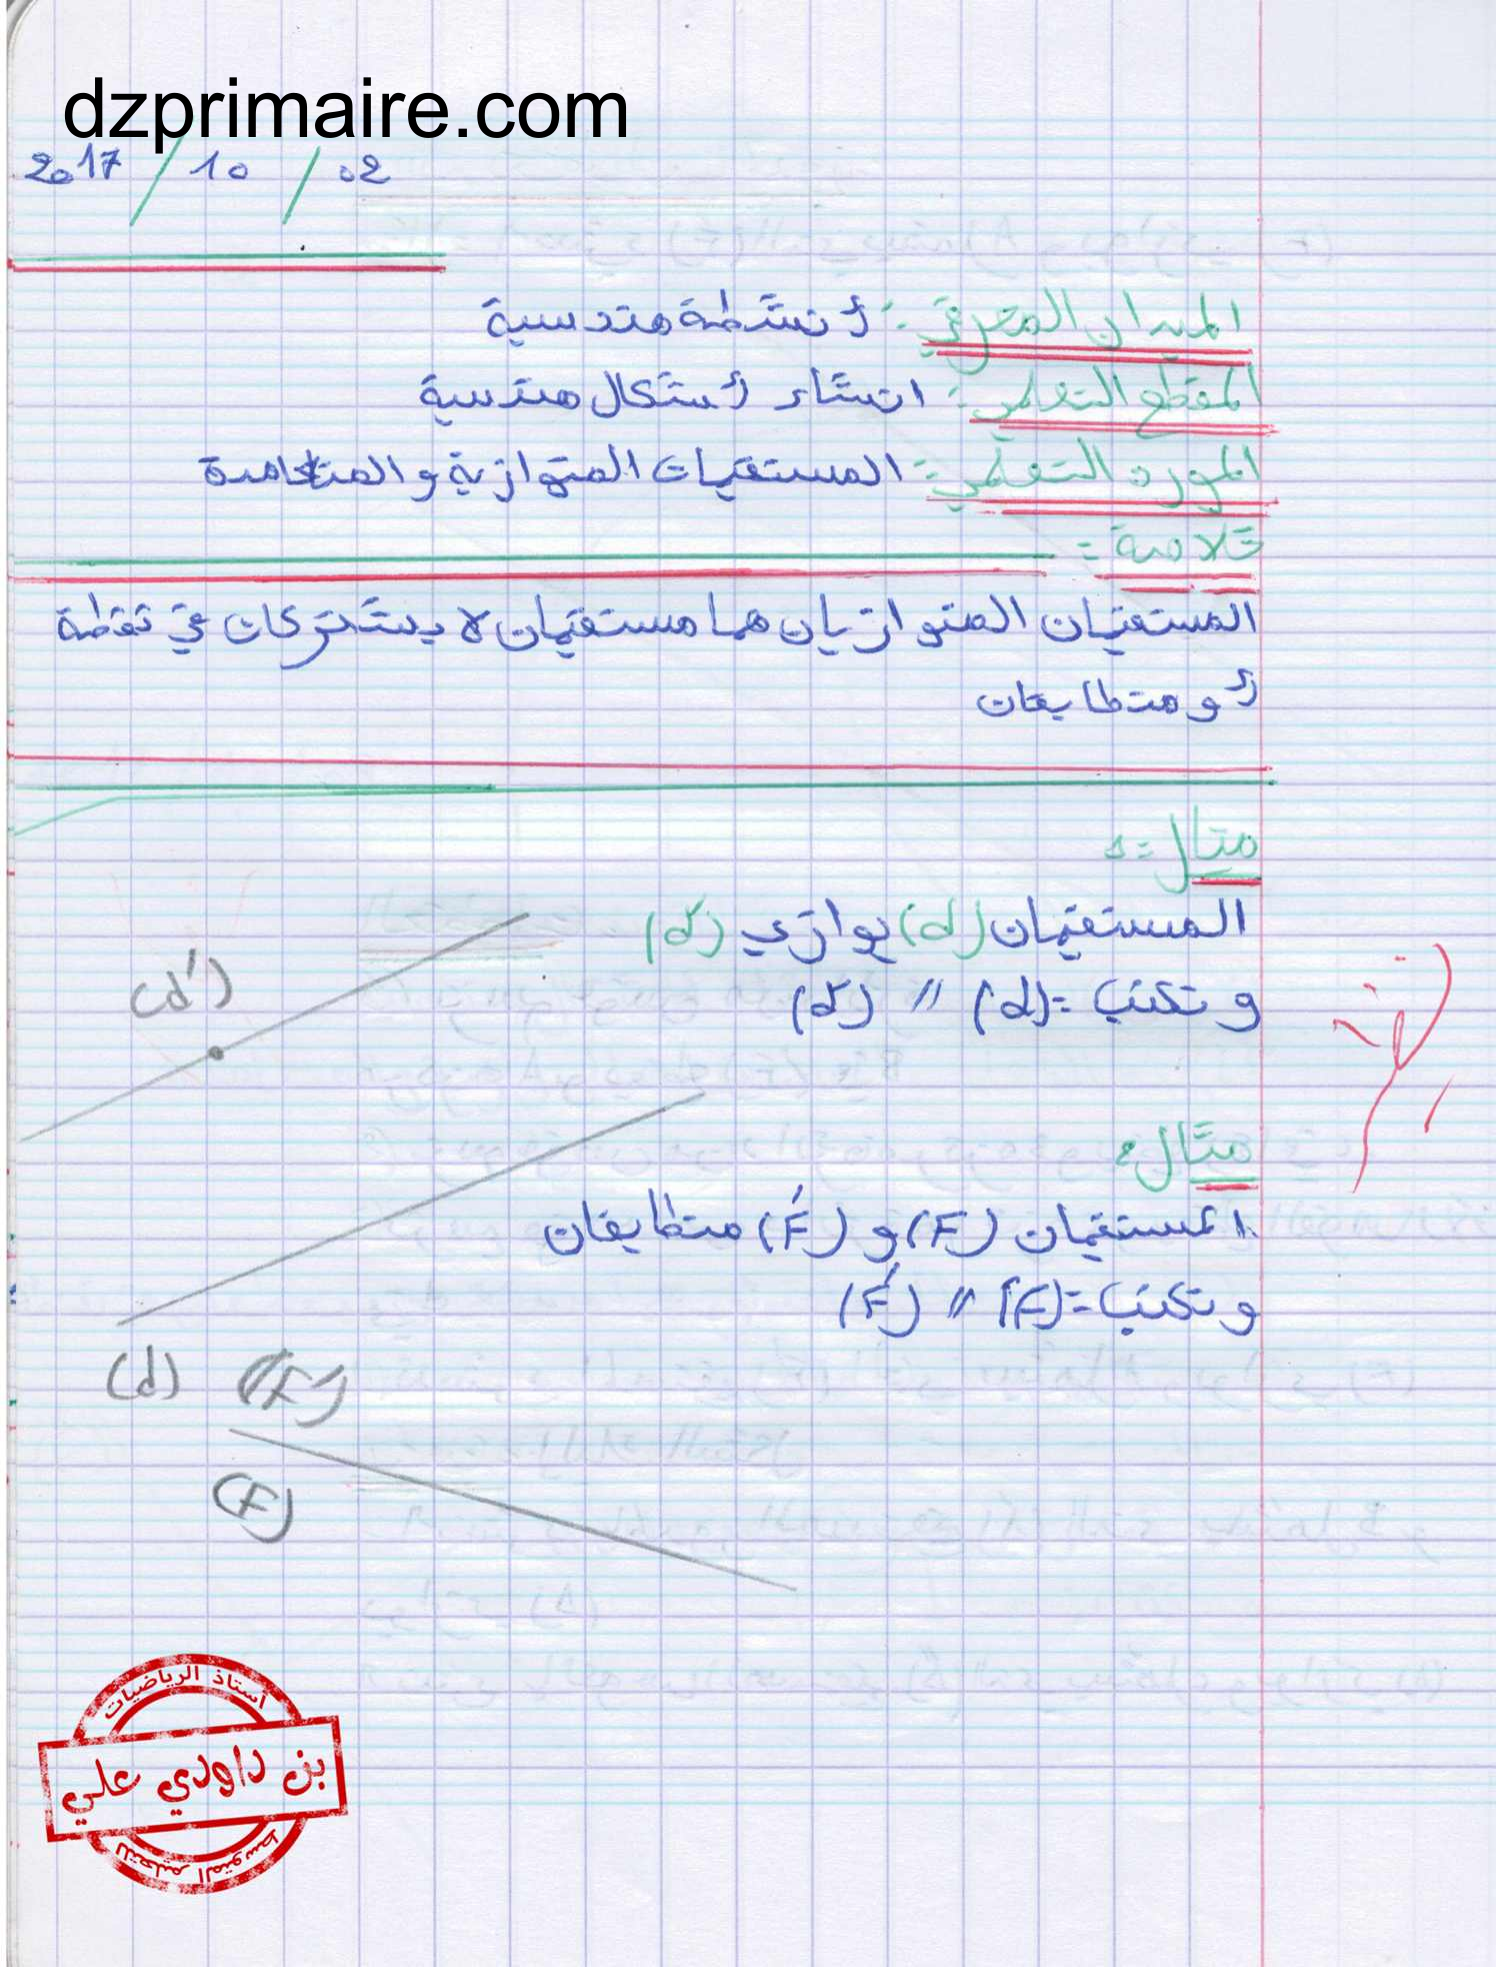 dzprimaire.com
2017 / 10 / 02
الميدان المعرفي: أنشطة هندسية
المقطع التعلمي: انشاء أشكال هندسية
المورد التعلمي: المستقيمات المتوازية و المتعامدة
خلاصة:
المستقيمان المتوازيان هما مستقيمان لا يشتركان في نقطة
أو متطابقان
مثال:
المستقيمان (d) يوازي (d')
و نكتب: (d) // (d')
(d')
مثال:
المستقيمان (F) و (F') متطابقان
و نكتب: (F) // (F')
(d)
(F')
(F)
أستاذ الرياضيات
بن داودي علي
للتعليم المتوسط